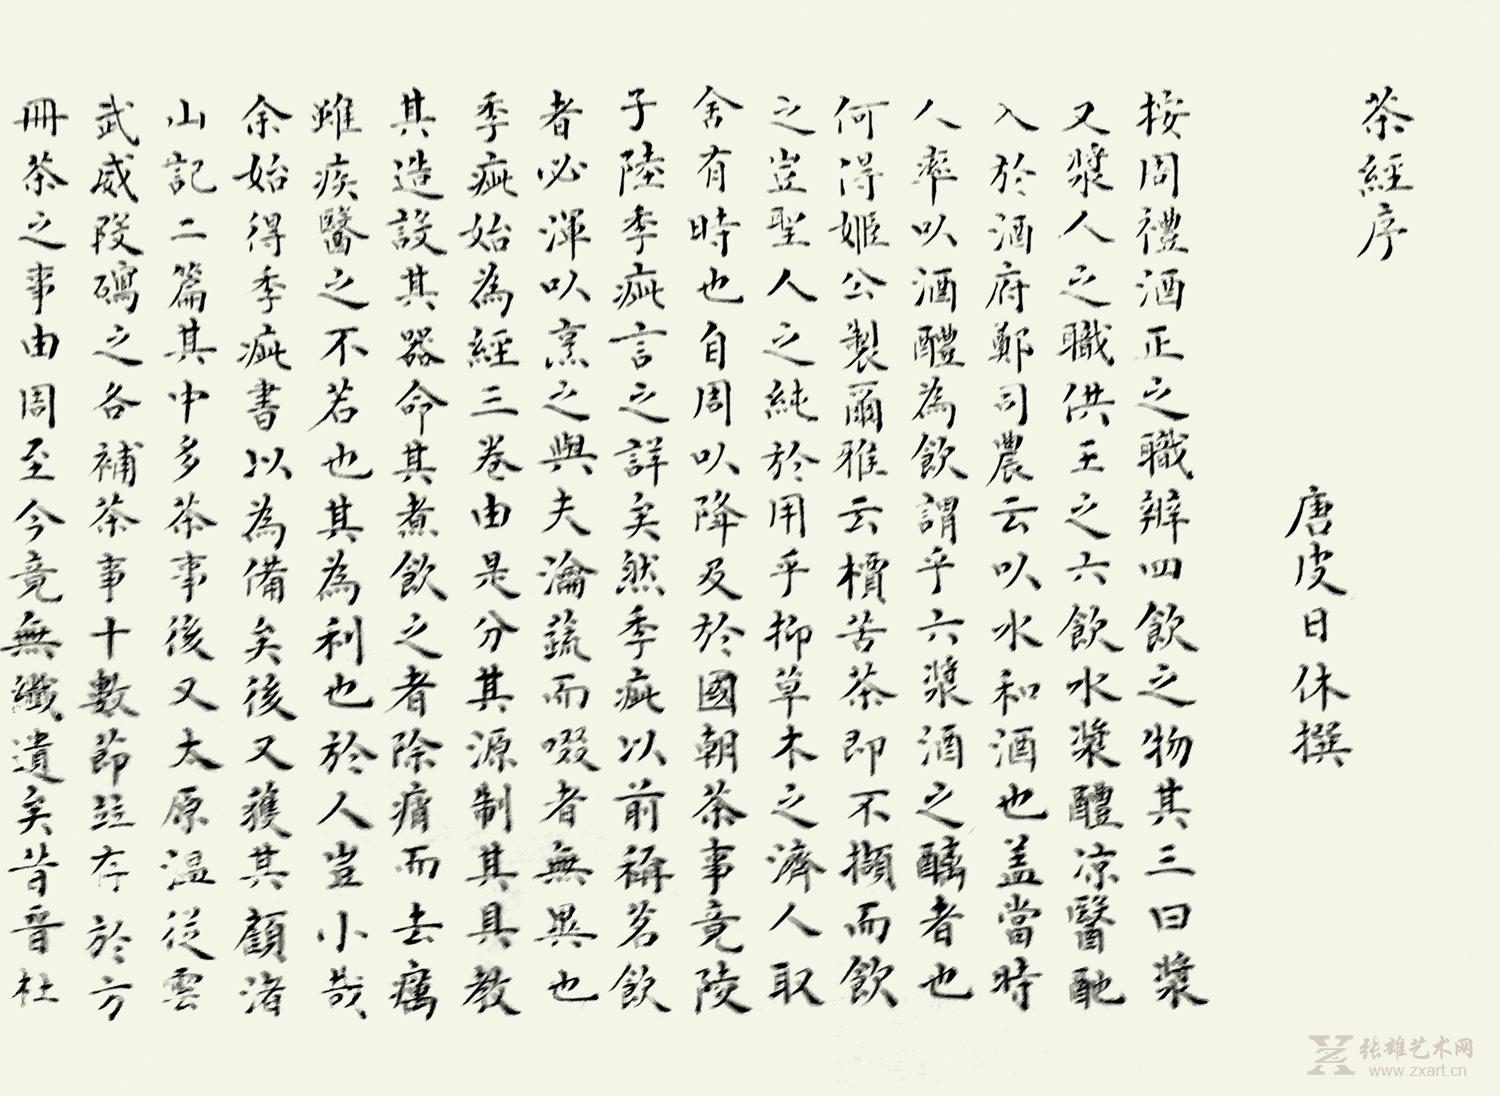 茶經序
唐皮日休撰
按周禮酒正之職辨四飲之物其三曰漿
又漿人之職供王之六飲水漿醴凉醫酏
入於酒府鄭司農云以水和酒也盖當時
人率以酒醴為飲謂乎六漿酒之醨者也
何得姬公製爾雅云檟苦茶即不擷而飲
之豈聖人之純於用乎抑草木之濟人取
舍有時也自周以降及於國朝茶事竟陵
子陸季疵言之詳矣然季疵以前稱茗飲
者必渾以烹之與夫瀹蔬而啜者無異也
季疵始為經三卷由是分其源制其具教
其造設其器命其煮飲之者除痟而去癘
雖疾醫之不若也其為利也於人豈小哉
余始得季疵書以為備矣後又獲其顧渚
山記二篇其中多茶事後又太原温從雲
武威段碣之各補茶事十數節竝存於方
冊茶之事由周至今竟無纖遺矣昔晉杜
张雄艺术网
www.zxart.cn